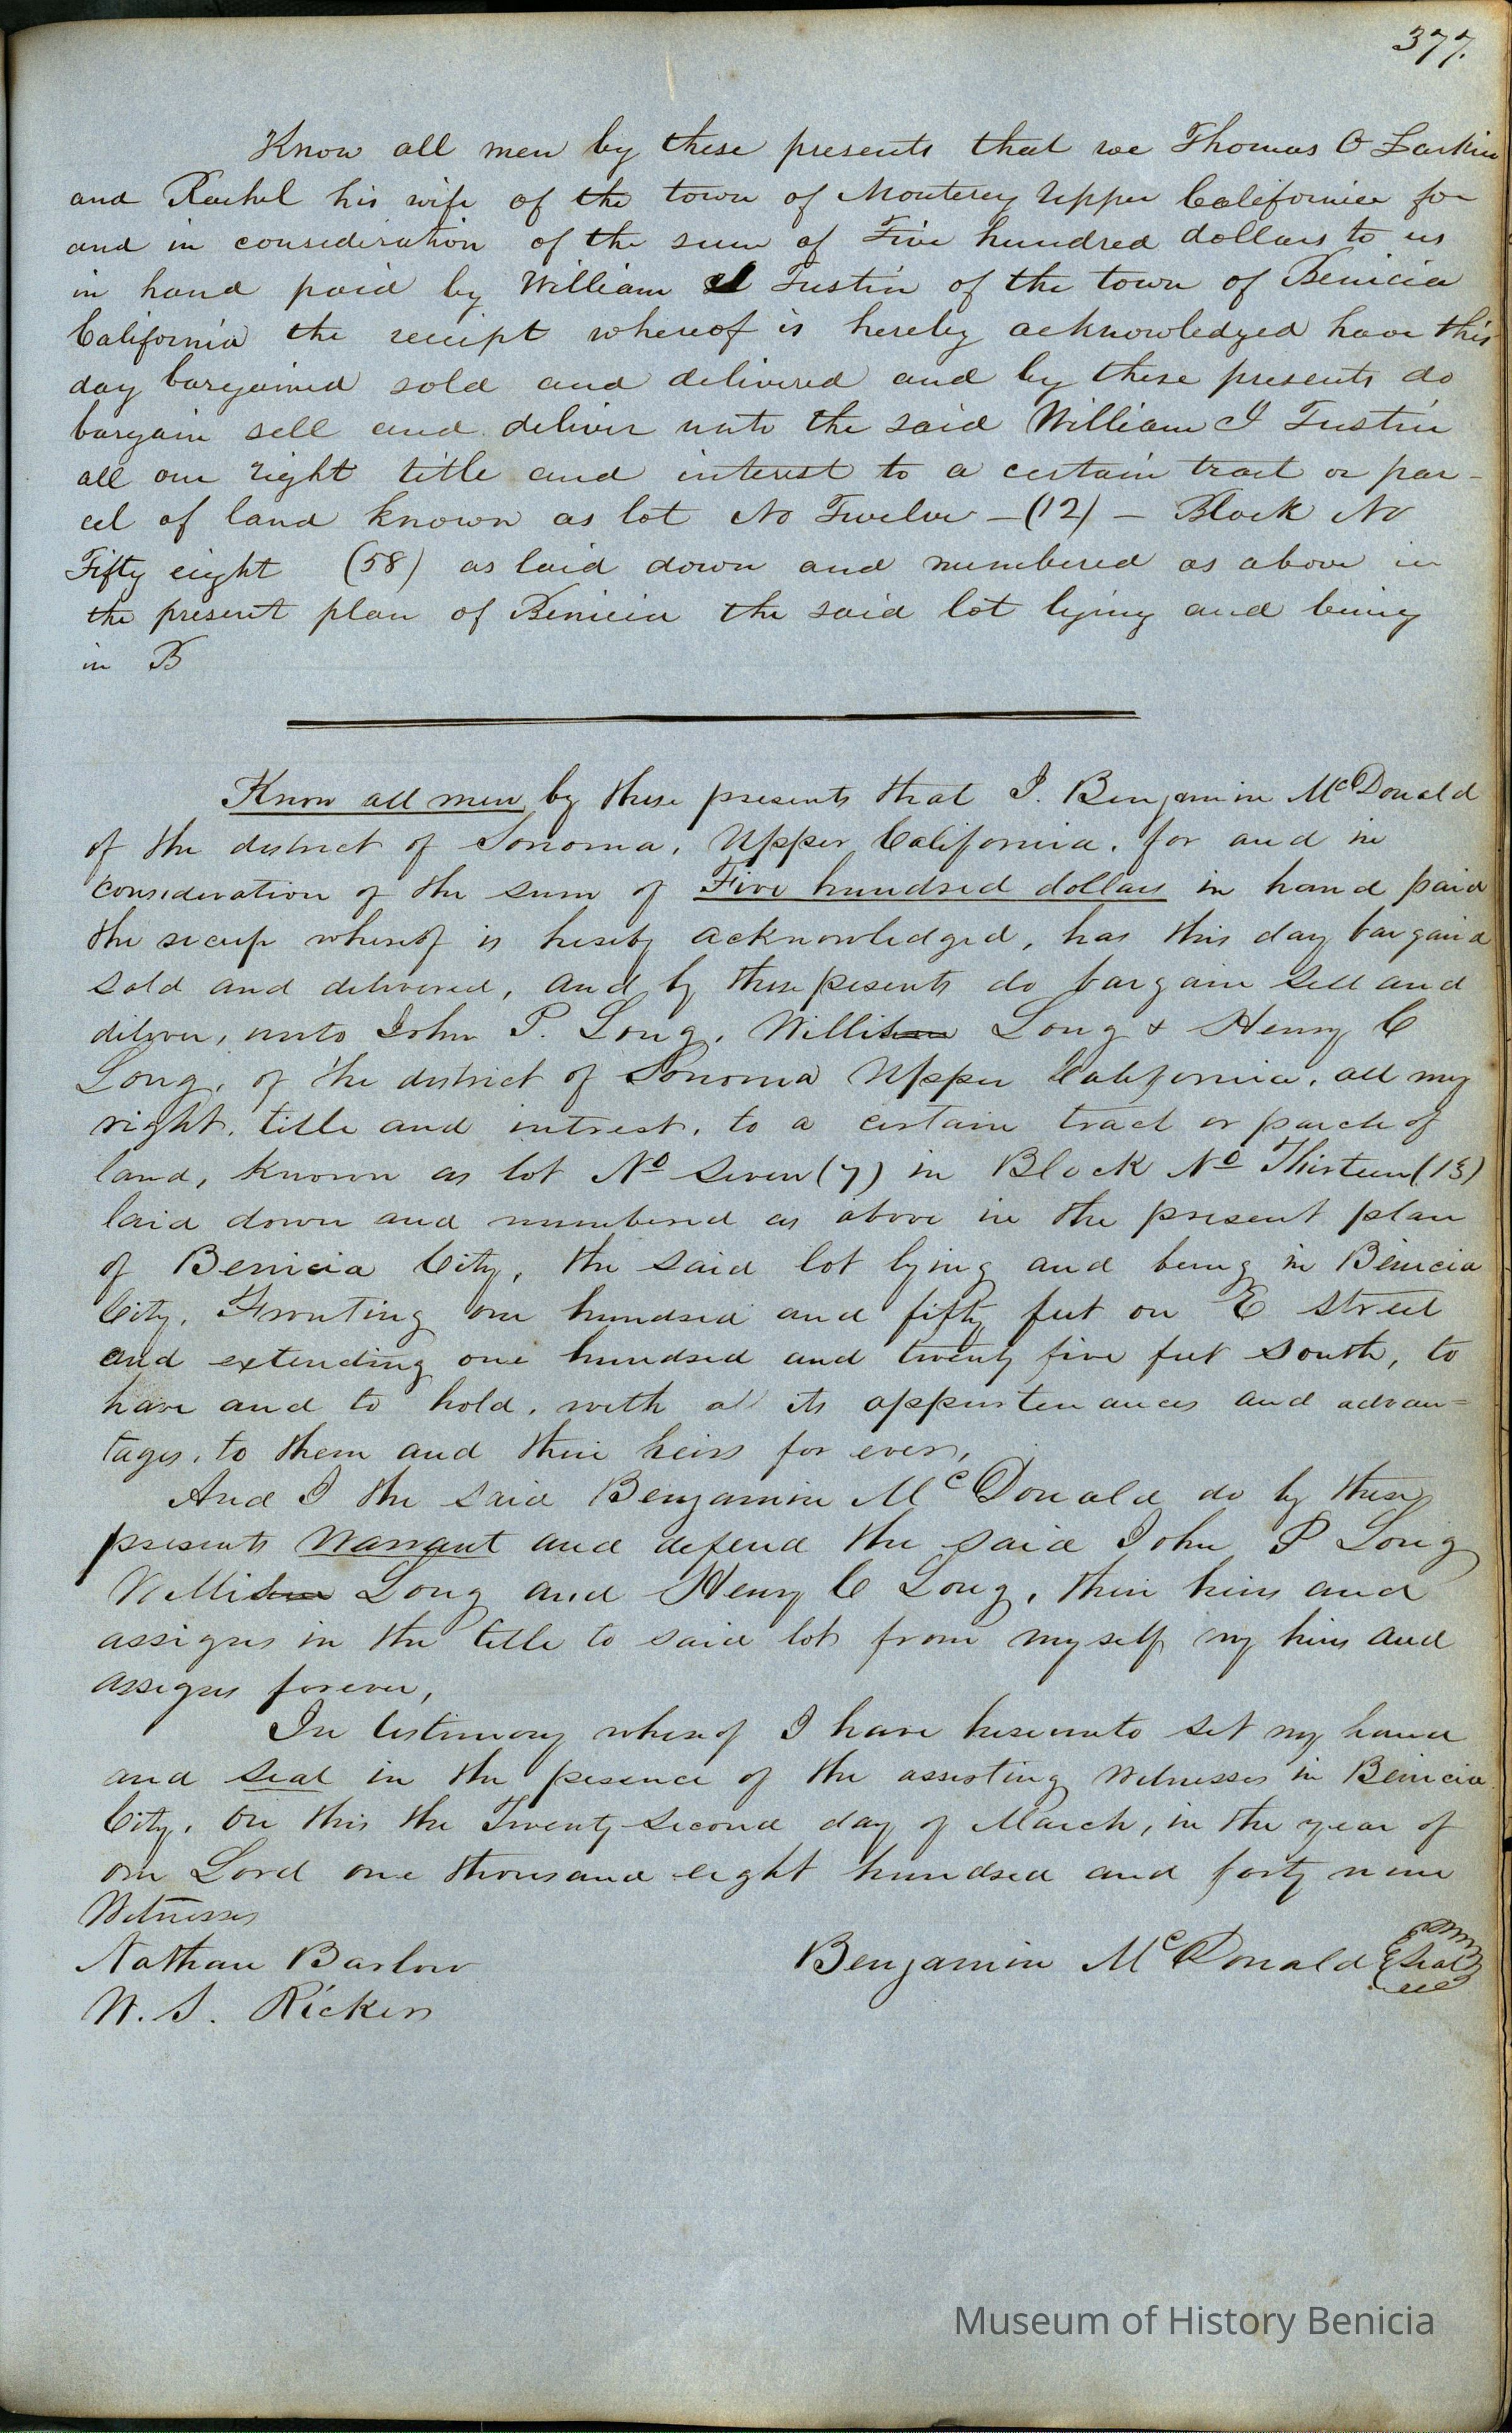 377.
Know all men by these presents that we Thomas O Larkin
and Rachel his wife of the town of Monterey Upper California for
and in consideration of the sum of Five hundred dollars to us
in hand paid by William I Tustin of the town of Benicia
California the receipt whereof is hereby acknowledged have this
day bargained sold and delivered and by these presents do
bargain sell and deliver unto the said William I Tustin
all our right title and interest to a certain tract or par-
cel of land known as lot No Twelve - (12) - Block No
Fifty eight (58) as laid down and numbered as above in
the present plan of Benicia the said lot lying and being
in B
Know all men by these presents that I. Benjamin McDonald
of the district of Sonoma, Upper California. for and in
consideration of the sum of Five hundred dollars in hand paid
the receip whereof is hereby acknowledged, has this day bargaind
sold and delivered, and by these pesents do bargain sell and
deliver, unto John P. Long, Willis Long & Henry C
Long, of the district of Sonoma Upper California, all my
right, title and intrest, to a certain tract or parcle of
land, known as lot No Seven (7) in Block No Thirteen (13)
laid down and numbered as above in the present plan
of Benicia City, the said lot lying and being in Benicia
City, Fronting one hundred and fifty feet on E Street
and extending one hundred and twenty five feet south, to
have and to hold, with all its appurtenances and advan=
tages, to them and their heirs for ever,
And I the said Benjamin McDonald do by these
presents Warrant and defend the said John P Long
Willis Long and Henry C Long, their heirs and
assigns in the title to said lot from myself my heirs and
assigns forever,
In testimony whereof I have hereunto set my hand
and seal in the pesence of the assisting Witnesses in Benicia
City, on this the Twenty-second day of March, in the year of
our Lord one thousand eight hundred and forty nine
Witnesses
Nathan Barlow
Benjamin McDonald Seal
W. S. Ricken
Museum of History Benicia